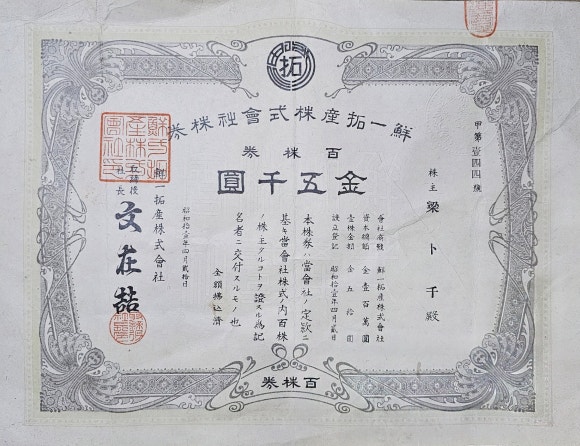 拓
鮮一拓産株式會社株券
百株券
金五千圓
甲第壹四四號
株主 梁卜千殿
會社商號 鮮一拓産株式會社
資本總額 金壹百萬圓
壹株金額 金五拾圓
設立登記 昭和拾壹年四月貳日
本株券ハ當會社ノ定款ニ
基キ當會社株式ノ内百株
ノ株主タルコトヲ證スル爲記
名者ニ交付スルモノ也
全額拂込濟
昭和拾壹年四月貳拾日
鮮一拓産株式會社
取締役
社長 文在喆
百株券